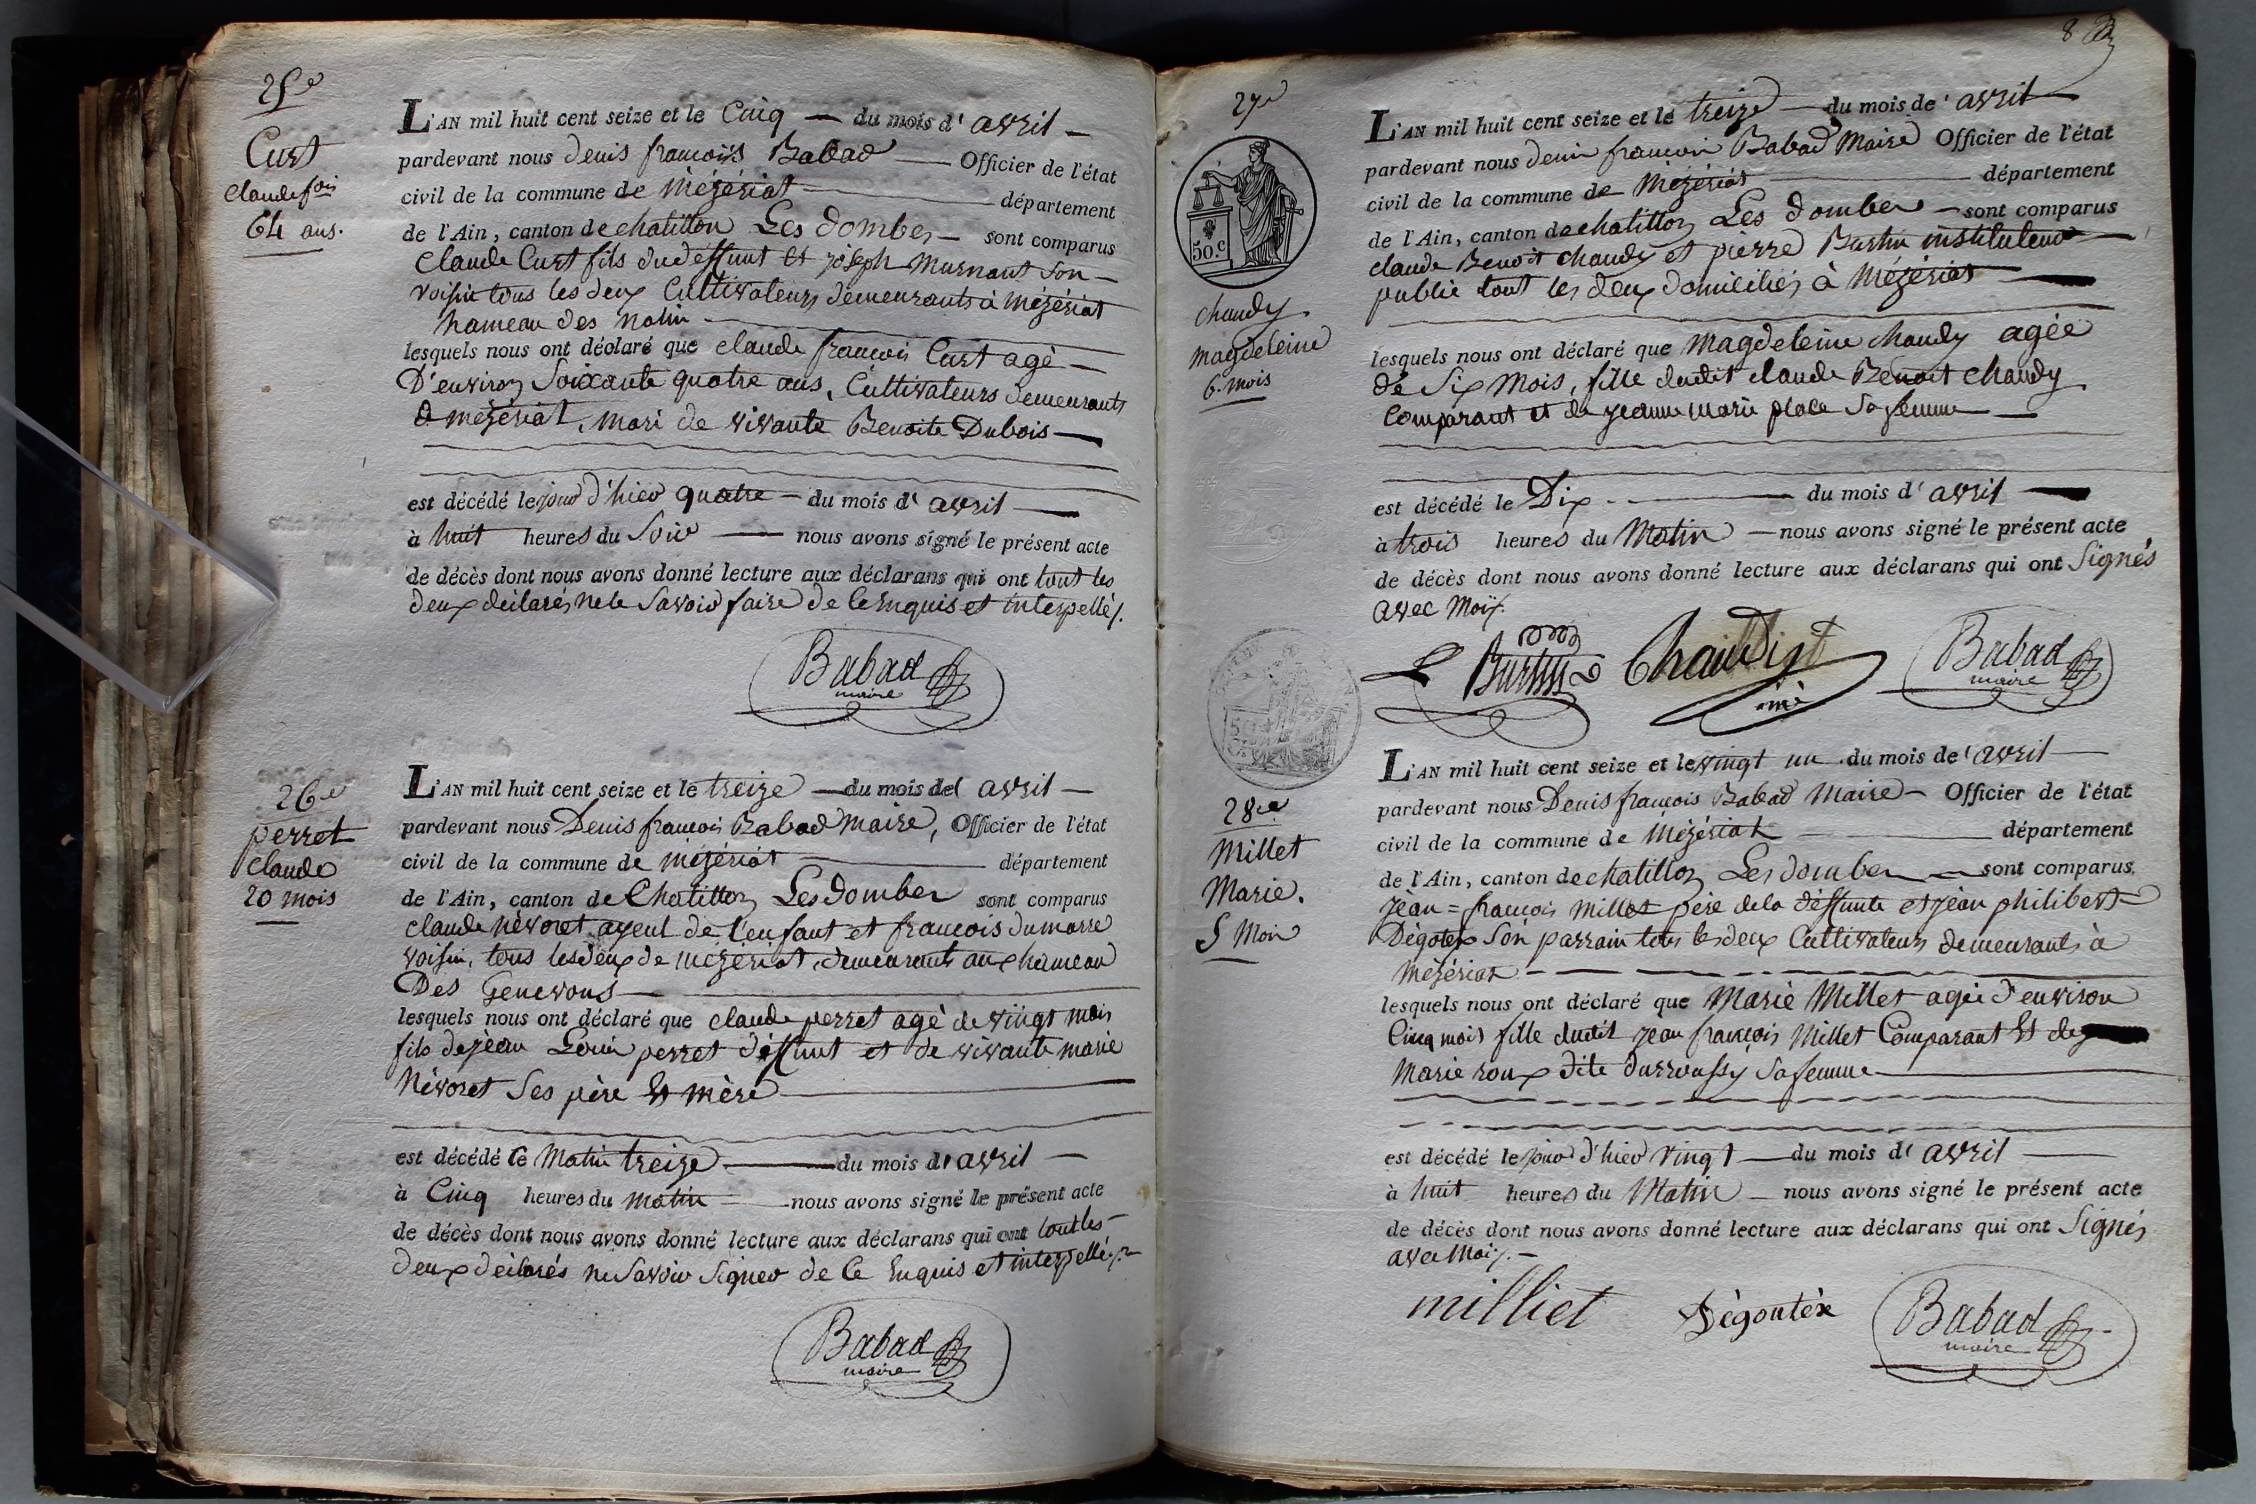 25e
Curt
Claude fois
64 ans.
L'AN mil huit cent seize et le Cinq — du mois d' avril —
pardevant nous denis françois Babad — Officier de l'état
civil de la commune de Mézériat — département
de l'Ain, canton de chatillon Les dombes — sont comparus
Claude Curt fils dudéffunt et joseph Murnant son —
voisin tous les deux Cultivateurs demeurants à mézériat
hameau des Nolin —
lesquels nous ont déclaré que claude françois Curt agé —
D'environ Soixante quatre ans, Cultivateurs demeurants
à mézériat, mari de vivante Benoite Dubois —
est décédé le jour d'hier quatre — du mois d' avril —
à huit heures du Soir — nous avons signé le présent acte
de décès dont nous avons donné lecture aux déclarans qui ont tout les
deux déclarés ne le Savoir faire de ce Enquis et interpellés.
Babad
maire
26e
perret
Claude
20 mois
L'AN mil huit cent seize et le treize — du mois de avril —
pardevant nous Denis françois Babad Maire, Officier de l'état
civil de la commune de mézériat — département
de l'Ain, canton de Chatillon Les Dombes sont comparus
claude Névoret ayeul de l'enfant et françois dumarre
voisin, tous lesdeux de mézériat, demeurants aux hameau
Des Genevons —
lesquels nous ont déclaré que claude perret agé de vingt mois
fils de jean Louis perret déffunt et de vivante marie
Névoret Ses père Et mère —
est décédé ce Matin treize — du mois d' avril —
à Cinq heures du matin — nous avons signé le présent acte
de décès dont nous avons donné lecture aux déclarans qui ont tout les —
deux déclarés ne Savoir Signer de Ce Enquis et interpellés.
Babad
maire
8
27e
50.c
chaudy
magdeleine
6. mois
L'AN mil huit cent seize et le treize — du mois de' avril —
pardevant nous denis françois Babad Maire Officier de l'état
civil de la commune de Mézériat — département
de l'Ain, canton de chatillon Les dombes — sont comparus
claude Benoit chaudy et pierre Burtin instituteur —
public tout les deux domiciliés à Mézériat —
lesquels nous ont déclaré que Magdeleine chaudy agée
de Six mois, fille dudit claude Benoit chaudy
Comparant et de jeanne marie place Sa femme —
est décédé le Dix — du mois d' avril —
à trois heures du Matin — nous avons signé le présent acte
de décès dont nous avons donné lecture aux déclarans qui ont Signés
avec Moi.
Burtin
Babad
maire
28ee
Millet
Marie.
5 Mois
L'AN mil huit cent seize et le vingt un du mois de' avril —
pardevant nous Denis françois Babad Maire — Officier de l'état
civil de la commune de Mézériat — département
de l'Ain, canton de chatillon Les dombes — sont comparus
jean = françois Millet père dela déffunte et jean philibert —
Dégotex Son parrain tous les deux Cultivateurs demeurants à
Mézériat —
lesquels nous ont déclaré que Marie Millet agée d'environ
Cinq mois fille dudit jean françois Millet Comparant Et de
Marie roux dite durroussy Sa femme —
est décédé le jour d'hier vingt — du mois d' avril —
à huit heures du Matin — nous avons signé le présent acte
de décès dont nous avons donné lecture aux déclarans qui ont Signés
avec Moi. —
milliet
Dégoutéx
Babad
maire